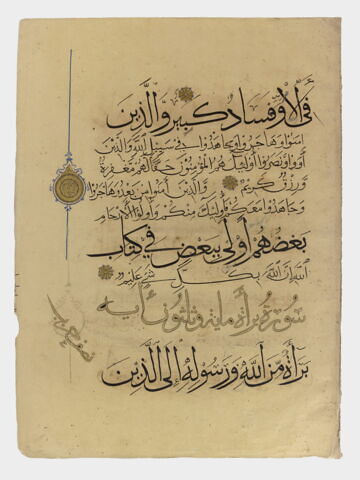 فى الأرض وفساد كبير والذين
امنوا وهاجروا وجاهدوا فى سبيل الله والذين
آووا ونصروا أولئك هم المؤمنون حقا لهم مغفرة
ورزق كريم والذين امنوا من بعد وهاجروا
وجاهدوا معكم فأولئك منكم وأولوا الأرحام
بعضهم أولى ببعض فى كتاب
الله إن الله بكل شىء عليم
سورة براة مایة وثلثون آیة
براءة من الله ورسوله إلى الذين